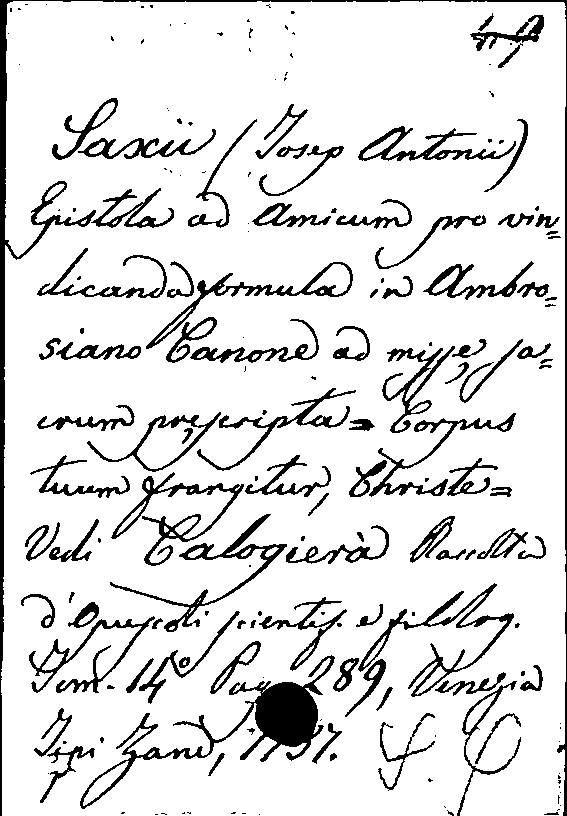 Saxii (Josep Antonii)
Epistola ad Amicum pro vin=
dicanda formula in Ambro=
siano Canone ad missę sa=
crum pręscripta = Corpus
tuum frangitur, Christe =
Vedi Calogierà Raccolta
d'Opuscoli scientif. e filolog.
Tom. 14° Pag. 289, Venezia
Tipi Zane, 1737.